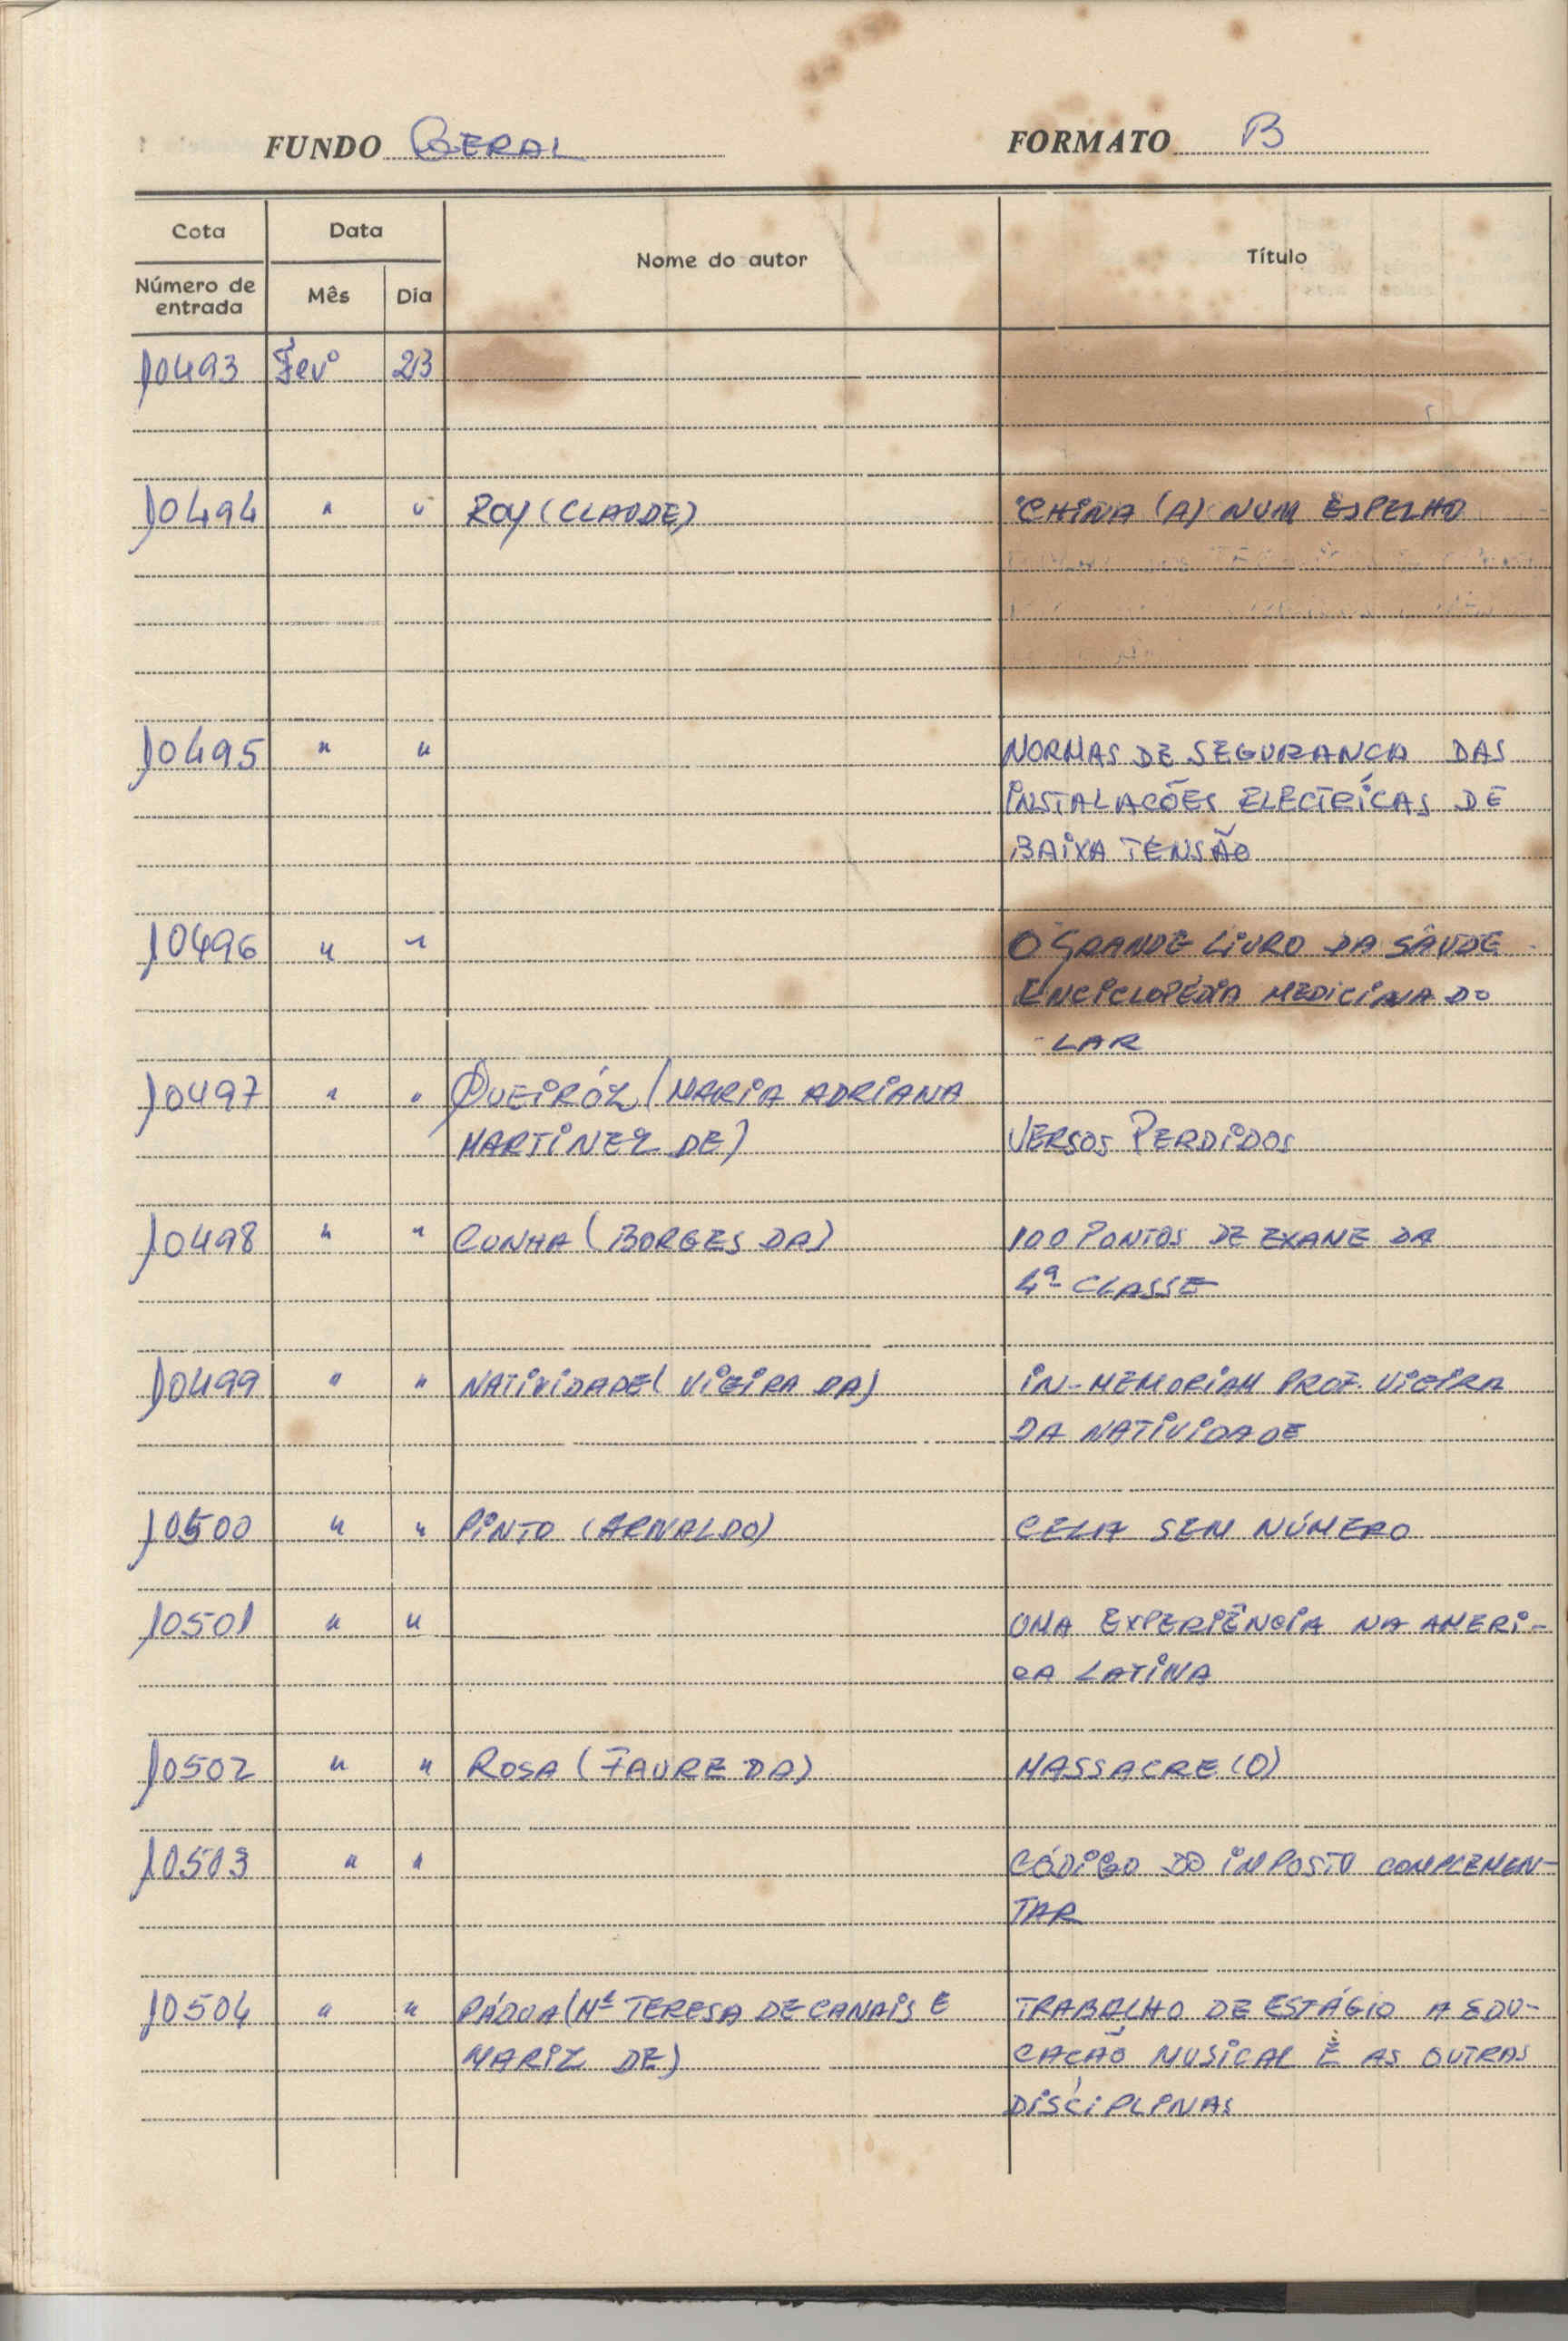 FUNDO GERAL FORMATO B
Cota Data Nome do autor Título
Número de entrada Mês Dia
10493 Fevº 23
10494 " " ROY (CLAUDE) CHINA (A) NUM ESPELHO
10495 " " NORMAS DE SEGURANÇA DAS
INSTALAÇÕES ELECTRÍCAS DE
BAIXA TENSÃO
10496 " " O GRANDE LIVRO DA SAÚDE
ENCICLOPÉDIA MEDICINA DO
LAR
10497 " " QUEIRÓZ (MARIA ADRIANA
MARTINEZ DE) VERSOS PERDIDOS
10498 " " CUNHA (BORGES DA) 100 PONTOS DE EXAME DA
4ª CLASSE
10499 " " NATIVIDADE (VIEIRA DA) IN-MEMORIAM PROF. VIEIRA
DA NATIVIDADE
10500 " " PINTO (ARNALDO) CELA SEM NÚMERO
10501 " " UMA EXPERIÊNCIA NA AMERI-
CA LATINA
10502 " " ROSA (FAURE DA) MASSACRE (O)
10503 " " CÓDIGO DO IMPOSTO COMPLEMEN-
TAR
10504 " " PÁDUA (Mª TERESA DE CANAIS E TRABALHO DE ESTÁGIO A EDU-
MARIZ DE) CAÇÃO MUSICAL E AS OUTRAS
DISCIPLINAS